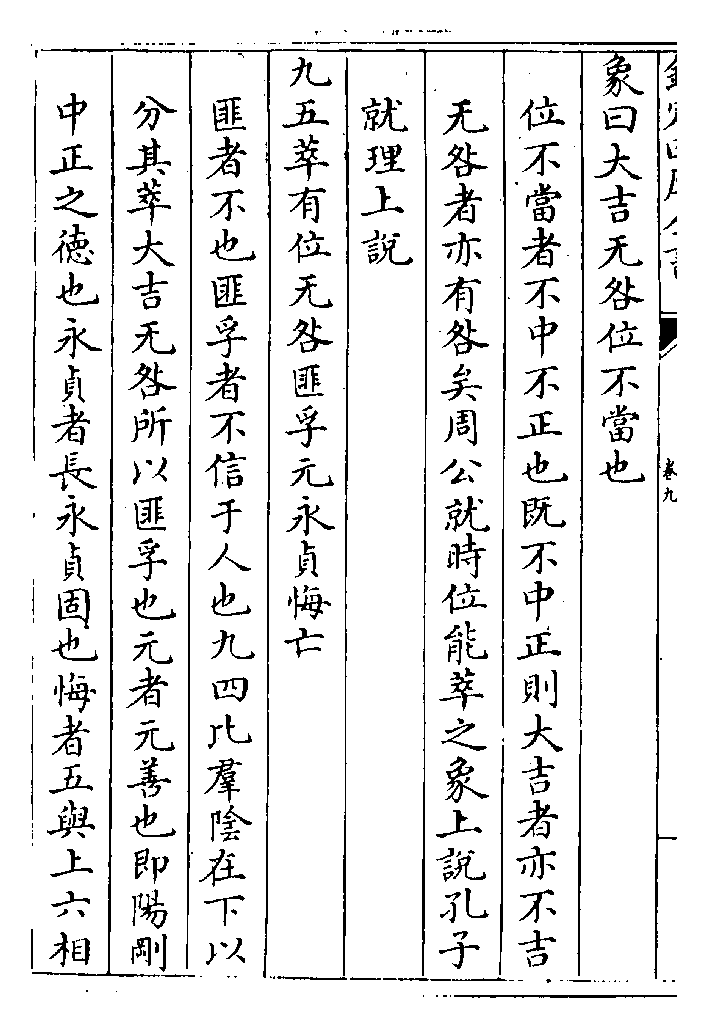 象曰大吉无咎位不當也
位不當者不中不正也既不中正則大吉者亦不吉
无咎者亦有咎矣周公就時位能萃之象上說孔子
就理上說
九五萃有位无咎匪孚元永貞悔亡
匪者不也匪孚者不信于人也九四比羣陰在下以
分其萃大吉无咎所以匪孚也元者元善也即陽剛
中正之德也永貞者長永貞固也悔者五與上六相
卷九